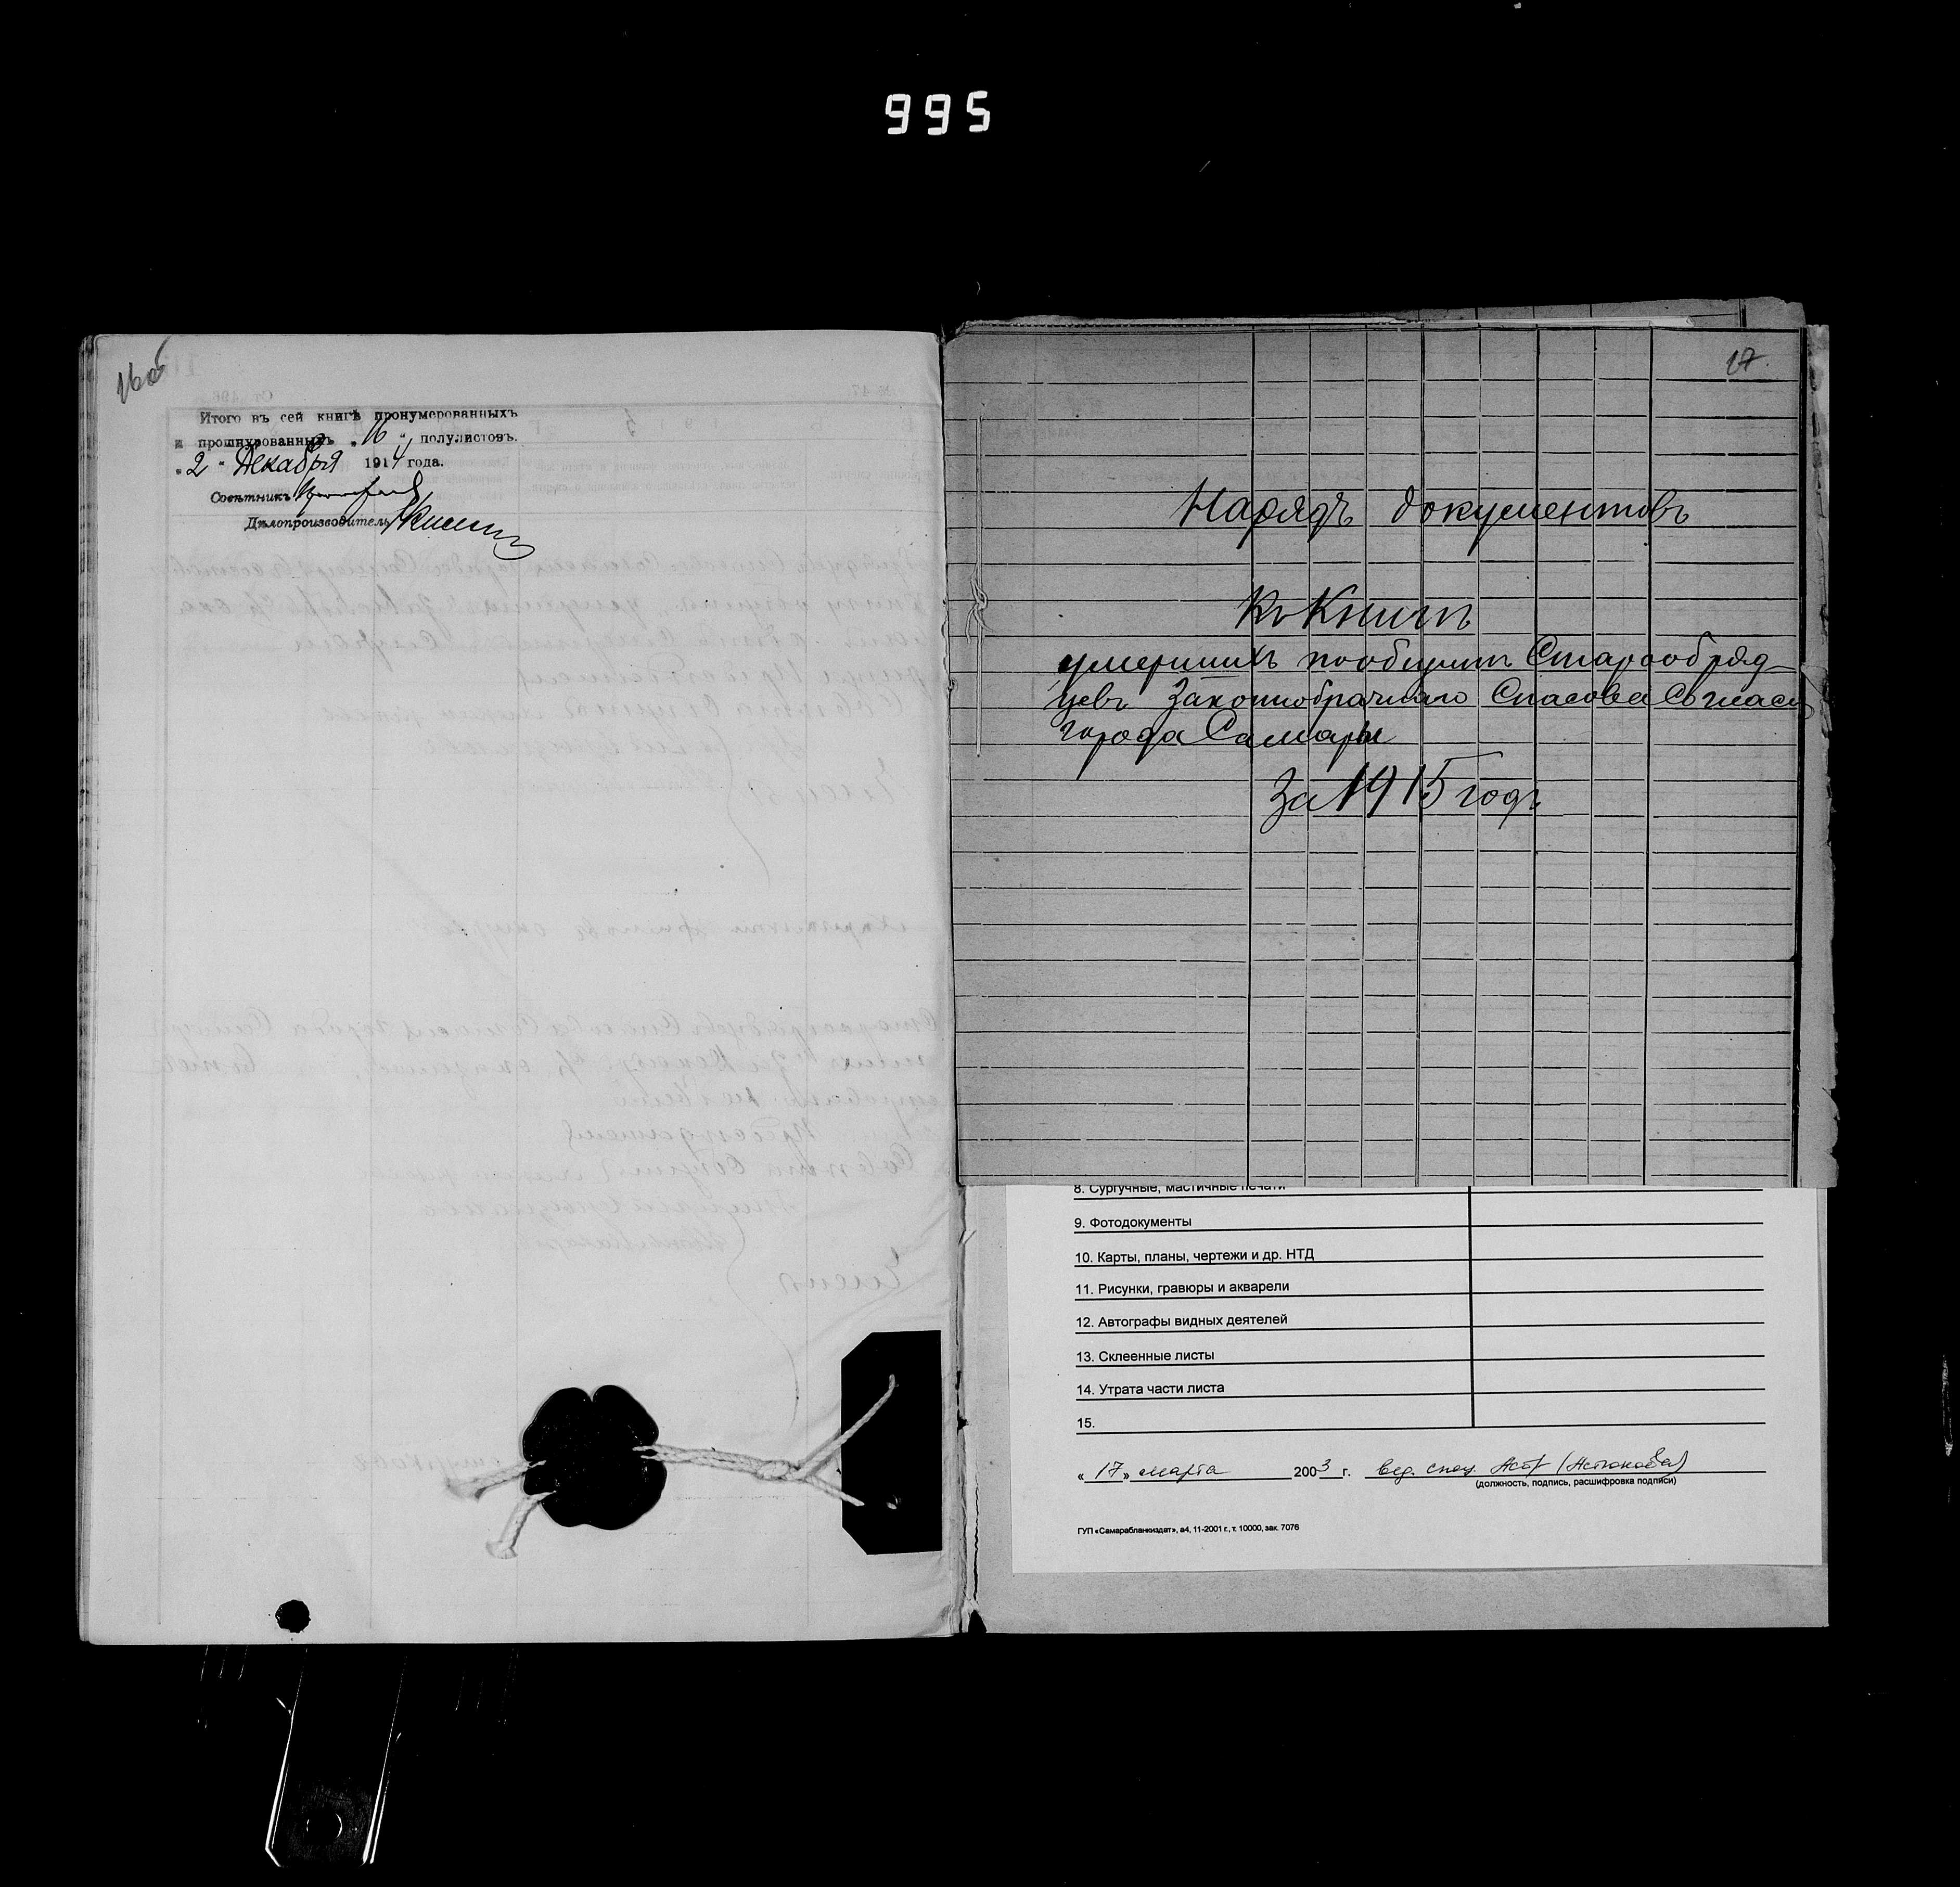 995
16об
Итого въ сей книгѣ пронумерованныхъ
и прошнурованныхъ „ 16 " полулистовъ.
„ 2 " Декабря 1914 года.
Совѣтникъ
Дѣлопроизводитель
17.
Нарядъ документовъ
Къ Книгѣ
умершихъ пообщинѣ Старообряд-
цевъ Законнобрачнаго Спасова Согласія
города Самары
За 1915 годъ
8. Сургучные, мастичные печати
9. Фотодокументы
10. Карты, планы, чертежи и др. НТД
11. Рисунки, гравюры и акварели
12. Автографы видных деятелей
13. Склеенные листы
14. Утрата части листа
15.
« 17 » марта 2003 г. вед. спец.
(должность, подпись, расшифровка подписи)
ГУП «Самарабланкиздат», а4, 11-2001 г., т. 10000, зак. 7076